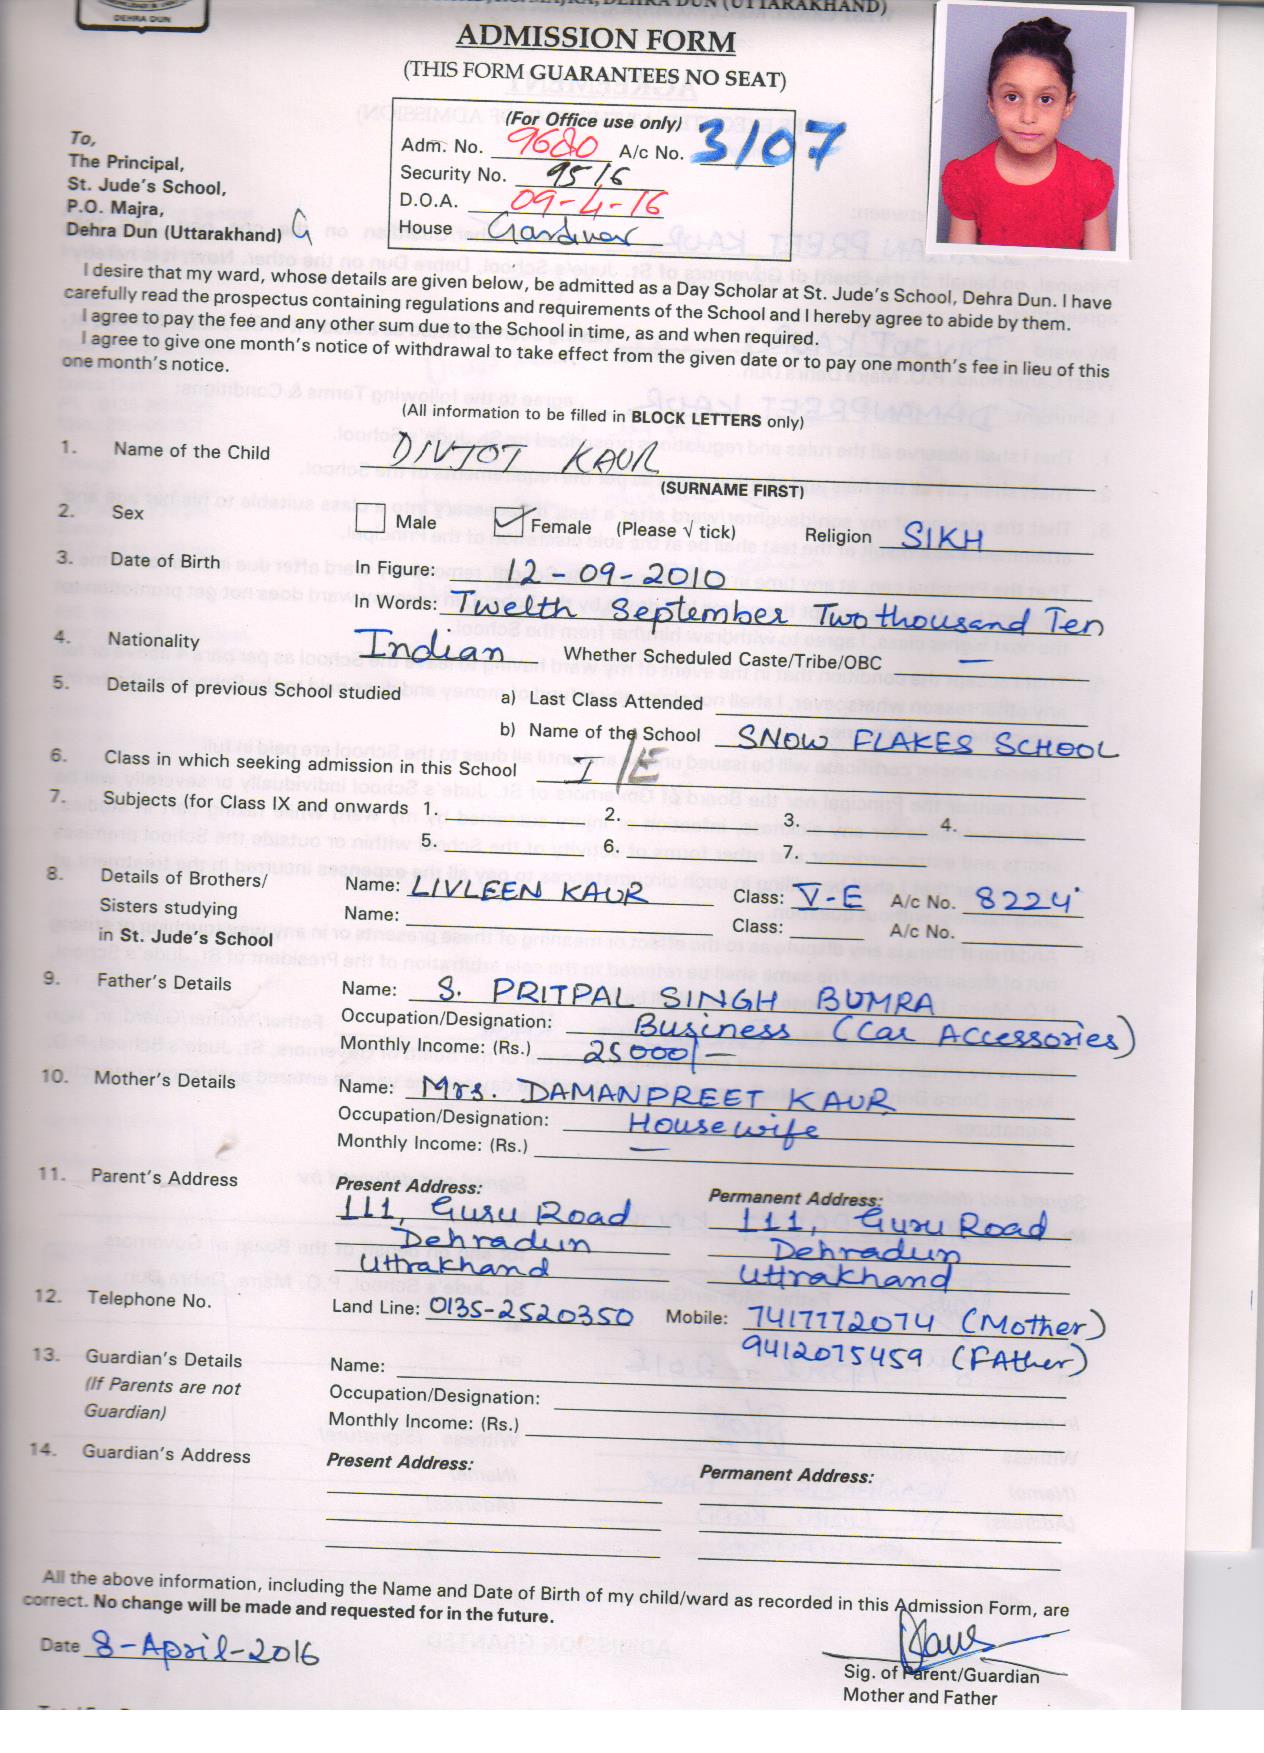 DEHRA DUN
MAJRA, DEHRA DUN (UTTARAKHAND)
ADMISSION FORM
(THIS FORM GUARANTEES NO SEAT)
(For Office use only)
Adm. No. 9680 A/c No. 3/07
Security No. 9516
D.O.A. 09-4-16
House Gardiner
To,
The Principal,
St. Jude's School,
P.O. Majra,
Dehra Dun (Uttarakhand) G
I desire that my ward, whose details are given below, be admitted as a Day Scholar at St. Jude's School, Dehra Dun. I have
carefully read the prospectus containing regulations and requirements of the School and I hereby agree to abide by them.
I agree to pay the fee and any other sum due to the School in time, as and when required.
I agree to give one month's notice of withdrawal to take effect from the given date or to pay one month's fee in lieu of this
one month's notice.
(All information to be filled in BLOCK LETTERS only)
1. Name of the Child DIVJOT KAUR
(SURNAME FIRST)
2. Sex Male Female (Please √ tick) Religion SIKH
3. Date of Birth In Figure: 12-09-2010
In Words: Twelth September Two thousand Ten
4. Nationality Indian Whether Scheduled Caste/Tribe/OBC —
5. Details of previous School studied a) Last Class Attended
b) Name of the School SNOW FLAKES SCHOOL
6. Class in which seeking admission in this School I/E
7. Subjects (for Class IX and onwards 1. 2. 3. 4.
5. 6. 7.
8. Details of Brothers/ Name: LIVLEEN KAUR Class: V-E A/c No. 8224
Sisters studying Name: Class: A/c No.
in St. Jude's School
9. Father's Details Name: S. PRITPAL SINGH BUMRA
Occupation/Designation: Business (Car Accessories)
Monthly Income: (Rs.) 25000/-
10. Mother's Details Name: Mrs. DAMANPREET KAUR
Occupation/Designation: Housewife
Monthly Income: (Rs.) —
11. Parent's Address Present Address: Permanent Address:
111, Guru Road 111, Guru Road
Dehradun Dehradun
Uttrakhand Uttrakhand
12. Telephone No. Land Line: 0135-2520350 Mobile: 7417772074 (Mother)
9412075459 (FAther)
13. Guardian's Details Name:
(If Parents are not Occupation/Designation:
Guardian) Monthly Income: (Rs.)
14. Guardian's Address Present Address: Permanent Address:
All the above information, including the Name and Date of Birth of my child/ward as recorded in this Admission Form, are
correct. No change will be made and requested for in the future.
Date 8-April-2016
Sig. of Parent/Guardian
Mother and Father